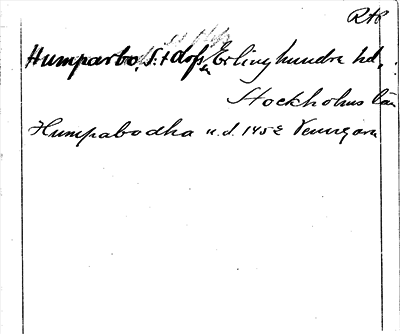 RAP
Humparbo, S. t. dǫfs, Erlinghundra hd,
Stockholms län
Humpabodha u.d. 1452 Venngarn